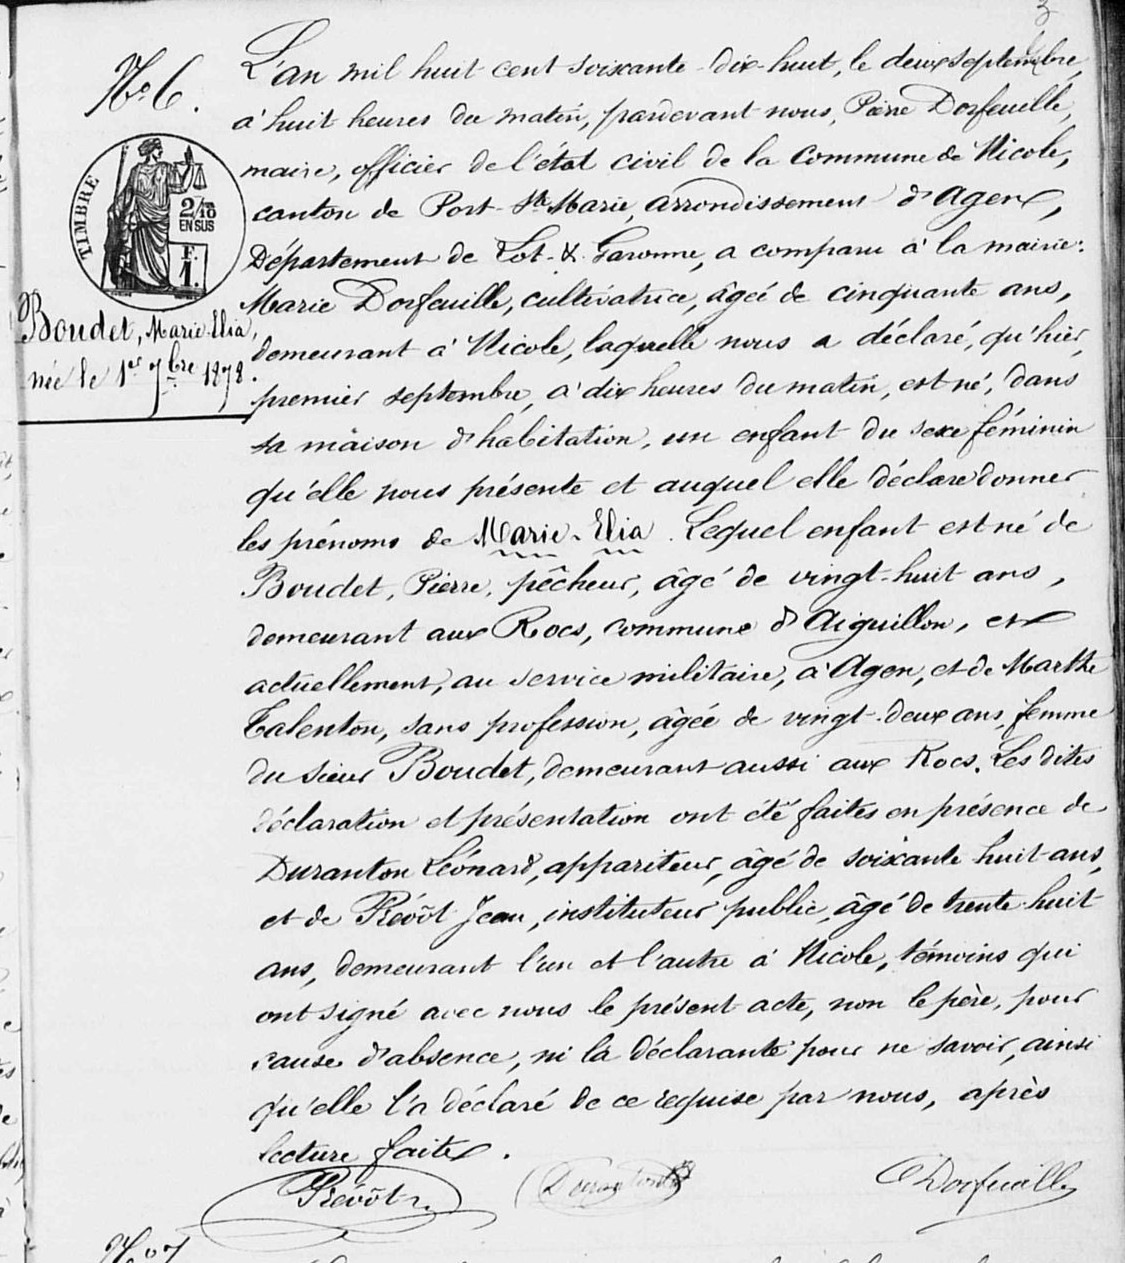 3
No 6.
L'an mil huit cent soixante-dix-huit, le deux septembre,
à huit heures du matin, pardevant nous, Pierre Dorfeuille,
maire, officier de l'état civil de la Commune de Nicole,
canton de Port-Ste-Marie, arrondissement d'Agen,
Département de Lot-&-Garonne, a comparu à la mairie:
Marie Dorfeuille, cultivatrice, âgée de cinquante ans,
demeurant à Nicole, laquelle nous a déclaré, qu'hier,
premier septembre, à dix heures du matin, est né, dans
sa maison d'habitation, un enfant du sexe féminin
qu'elle nous présente et auquel elle déclare donner
les prénoms de Marie-Elia. Lequel enfant est né de
Boudet, Pierre, pêcheur, âgé de vingt-huit ans,
demeurant aux Rocs, commune d'Aiguillon, et
actuellement, au service militaire, à Agen, et de Marthe
Talenton, sans profession, âgée de vingt-deux ans, femme
du sieur Boudet, demeurant aussi aux Rocs. Les dites
déclaration et présentation ont été faites en présence de
Duranton Léonard, appariteur, âgé de soixante huit ans,
et de Prévôt Jean, instituteur public, âgé de trente-huit
ans, demeurant l'un et l'autre à Nicole, témoins qui
ont signé avec nous le présent acte, non le père, pour
cause d'absence, ni la déclarante pour ne savoir, ainsi
qu'elle l'a déclaré de ce requise par nous, après
lecture faite.
Prévôt
Duranton
Dorfeuille
TIMBRE
2/10
EN SUS
F.
1.
Boudet, Marie Elia,
née le 1er 7bre 1878.
No 7